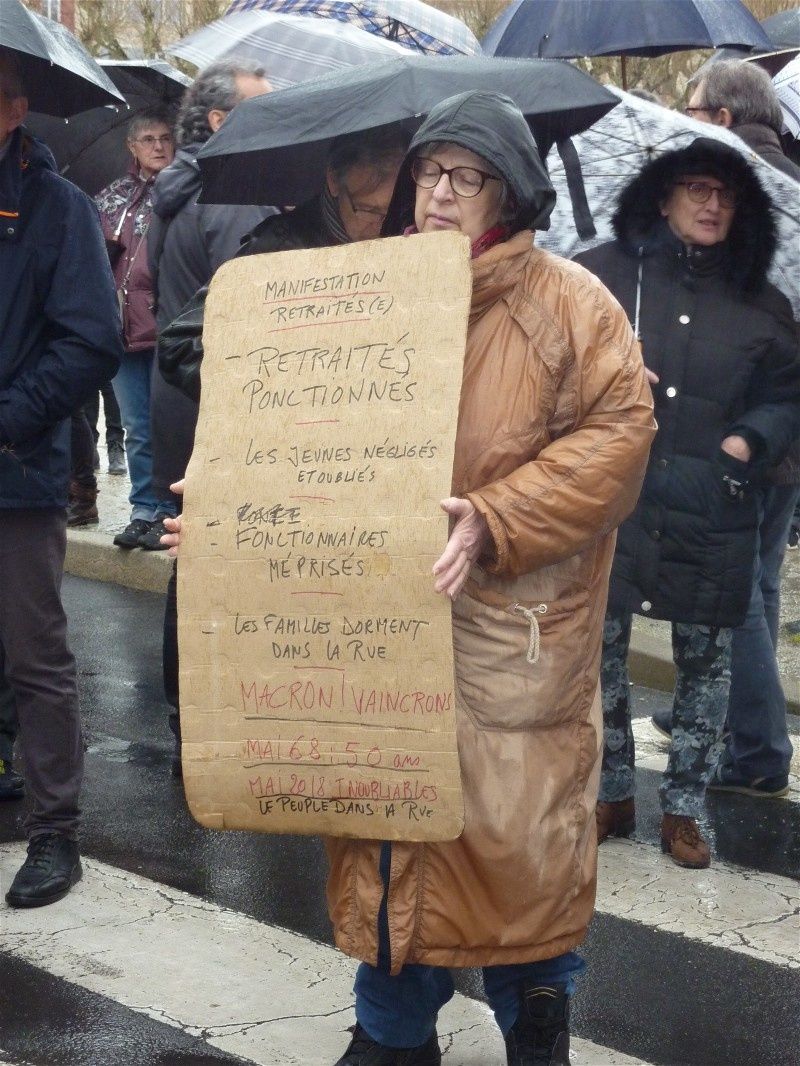 MANIFESTATION
RETRAITÉS(E)
- RETRAITÉS
PONCTIONNÉS
- LES JEUNES NÉGLIGÉS
ET OUBLIÉS
- FONCTIONNAIRES
MÉPRISÉS
- LES FAMILLES DORMENT
DANS LA RUE
MACRON! VAINCRONS
MAI 68: 50 ans
MAI 2018 INOUBLIABLES
LE PEUPLE DANS LA RUE